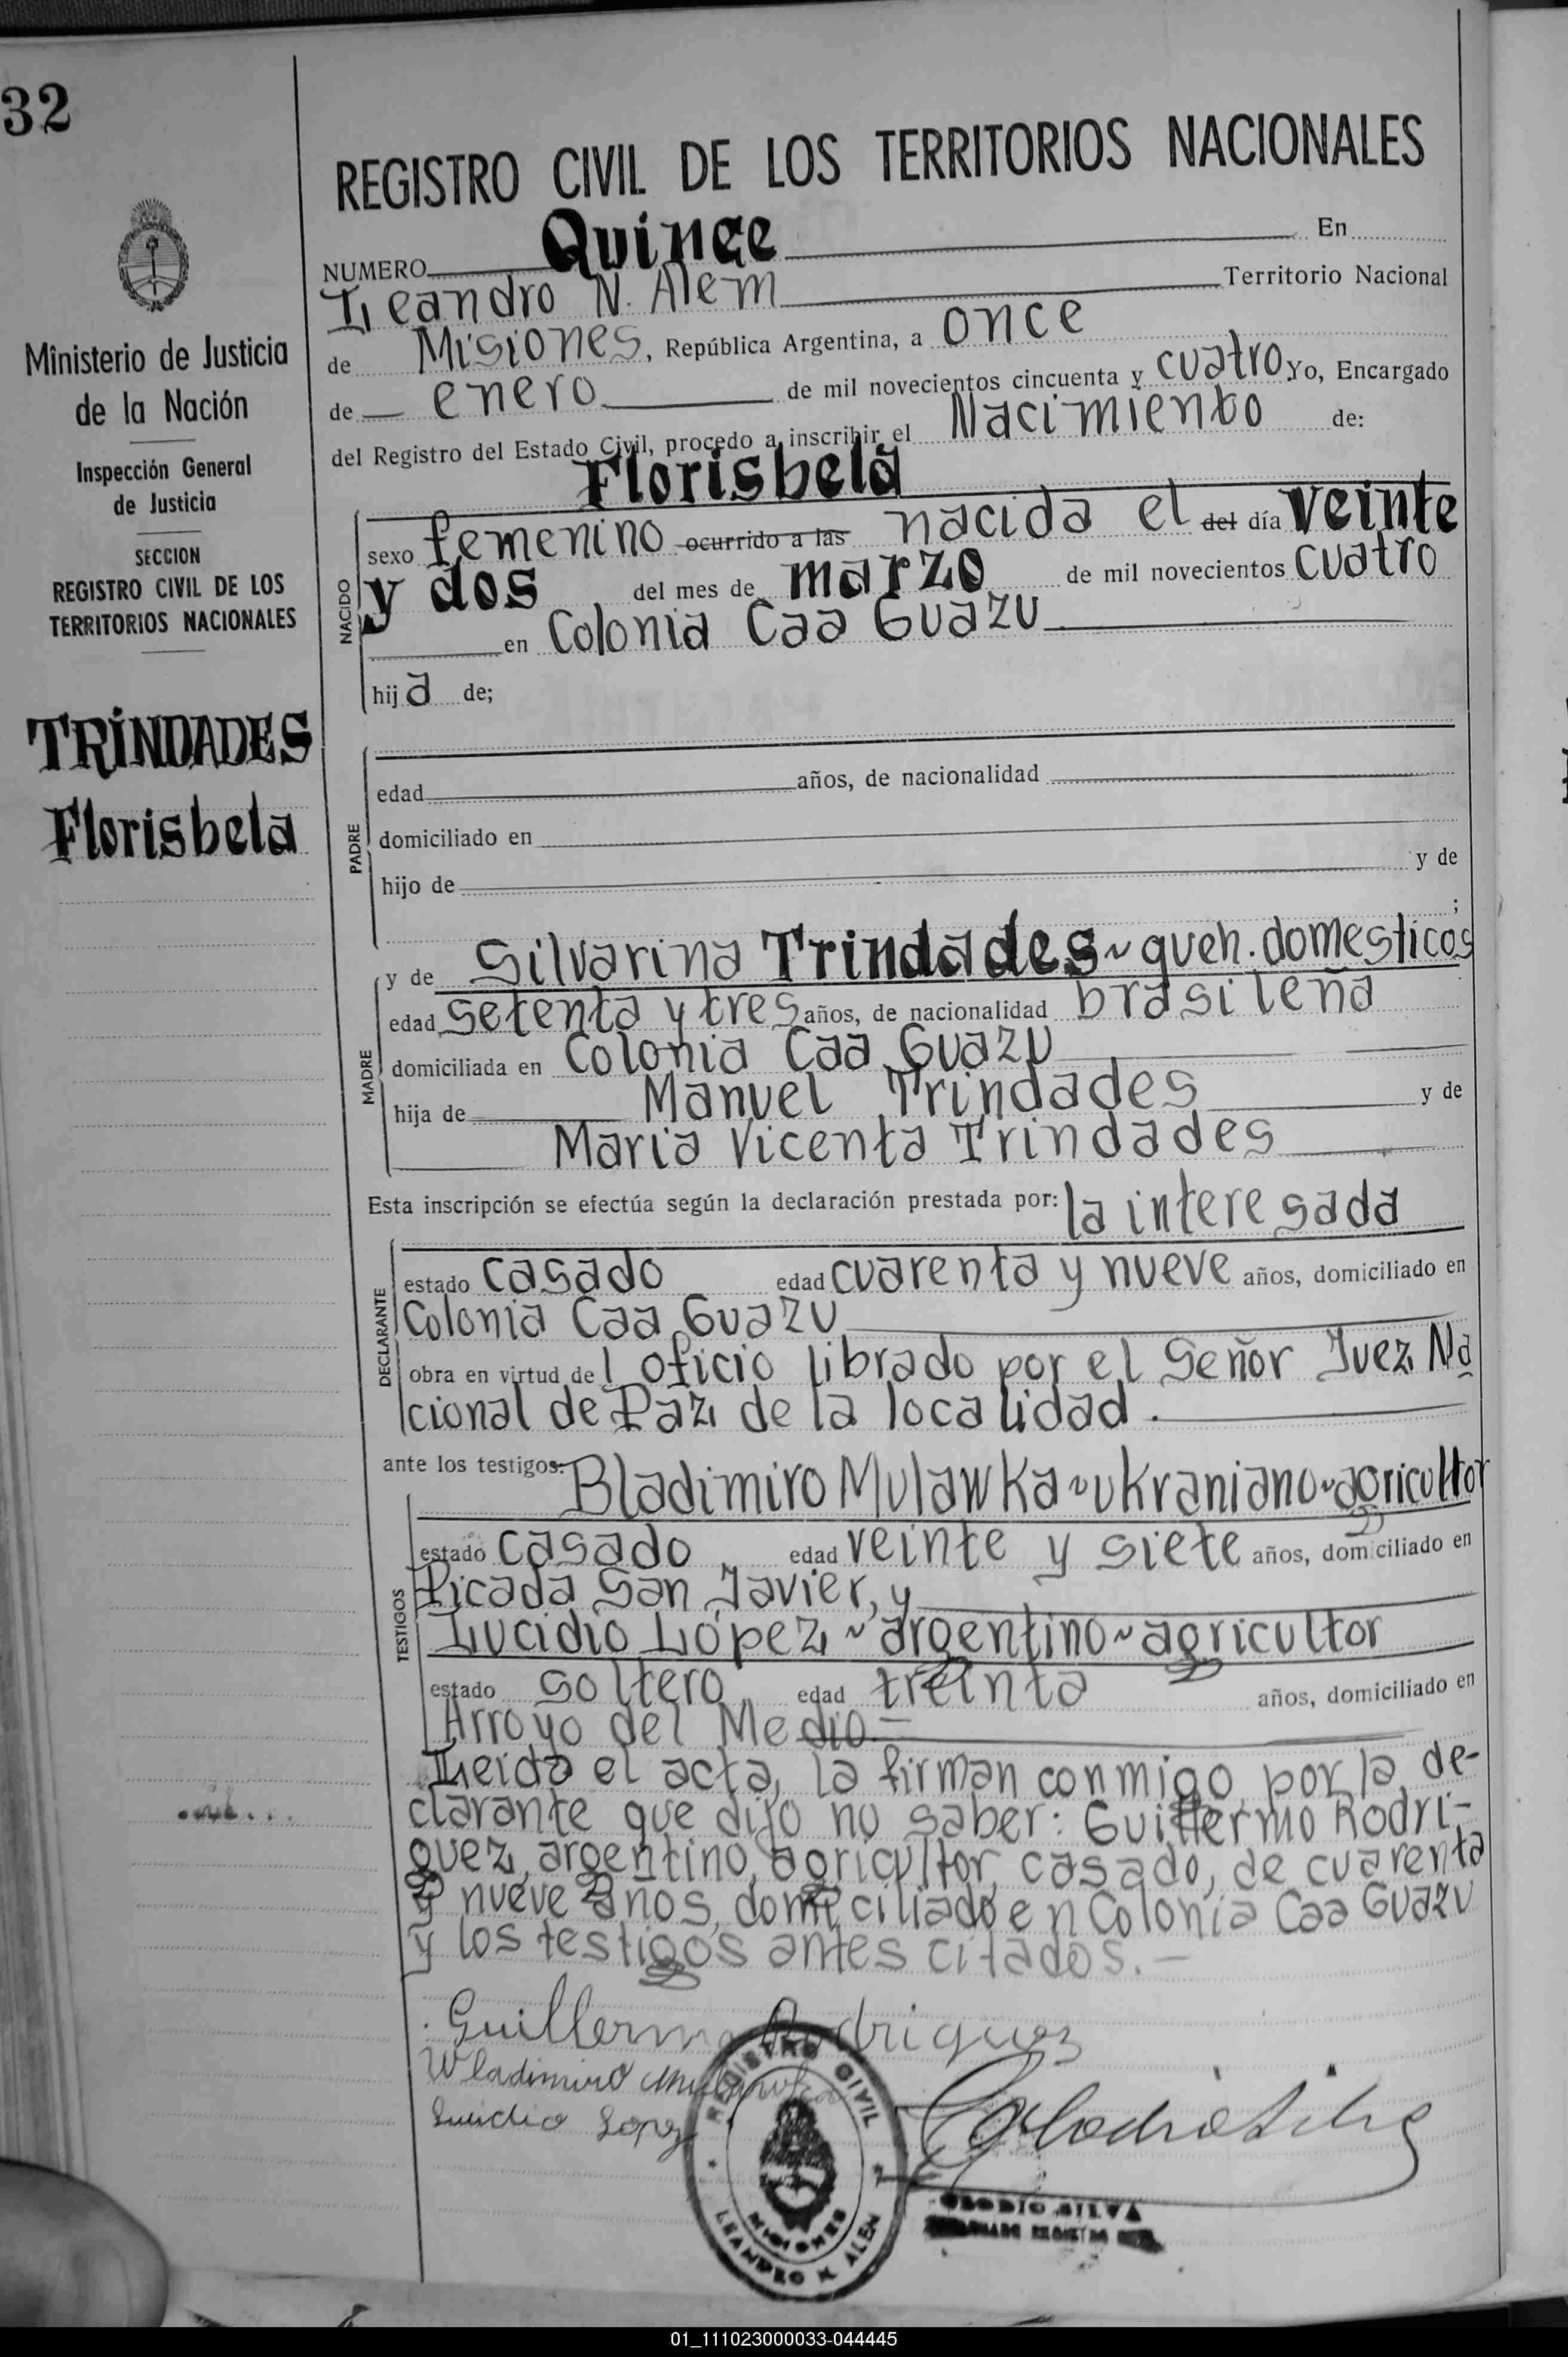 32
Ministerio de Justicia
de la Nación
Inspección General
de Justicia
SECCION
REGISTRO CIVIL DE LOS
TERRITORIOS NACIONALES
TRINDADES
Florisbela
REGISTRO CIVIL DE LOS TERRITORIOS NACIONALES
NUMERO Quince En
Leandro N. Alem Territorio Nacional
de Misiones, República Argentina, a once
de enero de mil novecientos cincuenta y cuatro Yo, Encargado
del Registro del Estado Civil, procedo a inscribir el Nacimiento de:
Florisbela
NACIDO
sexo femenino ocurrido a las nacida el del día veinte
y dos del mes de marzo de mil novecientos cuatro
en Colonia Caa Guazu
hija de;
PADRE
edad años, de nacionalidad
domiciliado en
hijo de y de
;
MADRE
y de Silvarina Trindades ~ queh. domesticos
edad setenta y tres años, de nacionalidad brasileña
domiciliada en Colonia Caa Guazu
hija de Manuel Trindades y de
Maria Vicenta Trindades
Esta inscripción se efectúa según la declaración prestada por: la interesada
DECLARANTE
estado casado edad cuarenta y nueve años, domiciliado en
Colonia Caa Guazu
obra en virtud del oficio librado por el Señor Juez Na
cional de Paz de la localidad.
ante los testigos: Bladimiro Mulawka ~ ukraniano ~ agricultor
TESTIGOS
estado casado, edad veinte y siete años, domiciliado en
Picada San Javier, y
Lucidio López ~ argentino ~ agricultor
estado soltero, edad treinta años, domiciliado en
Arroyo del Medio.=
Leida el acta, la firman conmigo, por la de-
clarante que dijo no saber: Guillermo Rodri-
guez, argentino, agricultor, casado, de cuarenta
y nueve años, domiciliado en Colonia Caa Guazu
y los testigos antes citados.-
Guillermo Rodriguez
Wladimiro Mulawka
Lucidio Lopez
REGISTRO CIVIL
MISIONES
LEANDRO N. ALEM
CLODIO SILVA
01_111023000033-044445